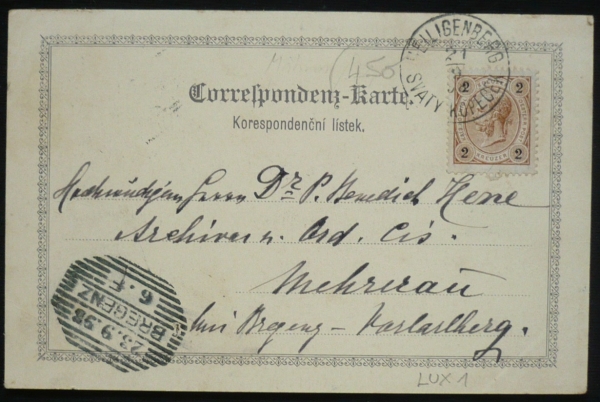 (456
HEILIGENBERG
21
9
SVATÝ KOPEČEK
2 2
2 2
Correspondenz-Karte.
Korespondenční lístek.
Hochwürdigen Herrn Dr. P. Benedict
Archivar n. Ord. Cis.
Mehrerau
bei Bregenz - Vorlarlberg.
BREGENZ
23.9.98
6.F
LUX 1